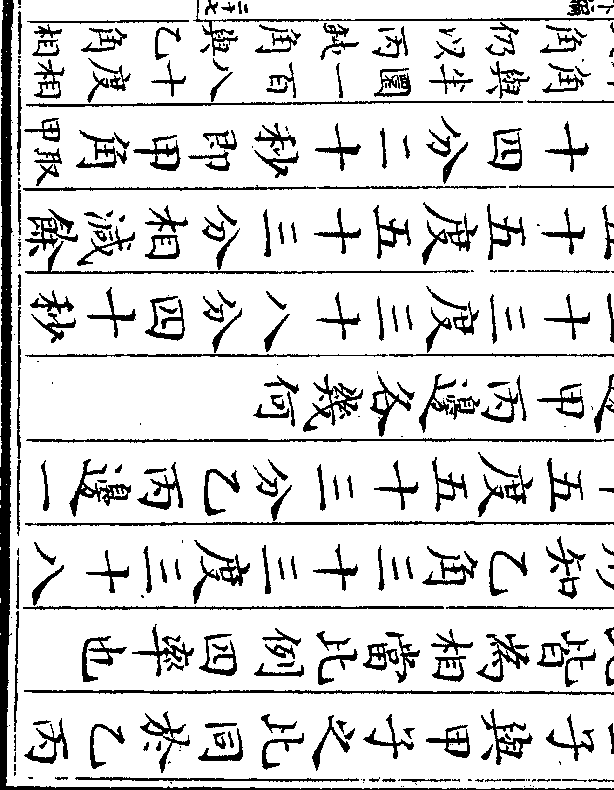 子與甲子之比同於乙丙
皆為相當比例四率也
知乙角三十三度三十八
五度五十三分乙丙邊一
甲丙邊各幾何
十三度三十八分四十秒
五十五度五十三分相減餘
十四分二十秒即甲角取
甲
角與半圜一百八十度相
角仍以丙鈍角與乙角相